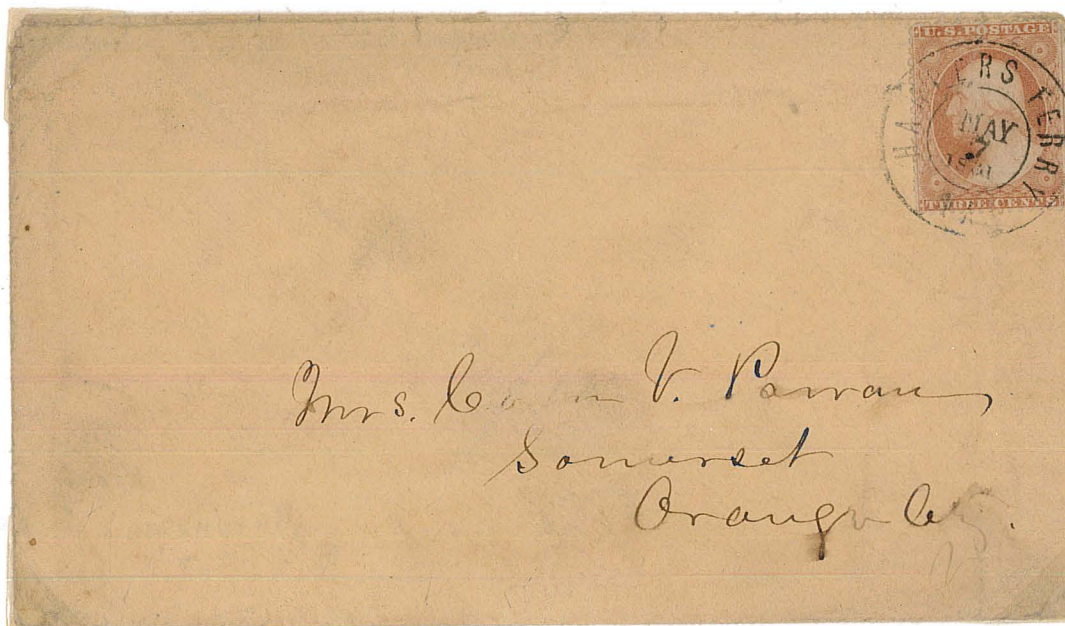 U.S. POSTAGE
HARPERS FERRY
MAY
7
1861
THREE CENTS
Mrs. V.
Somerset
Orange Co.